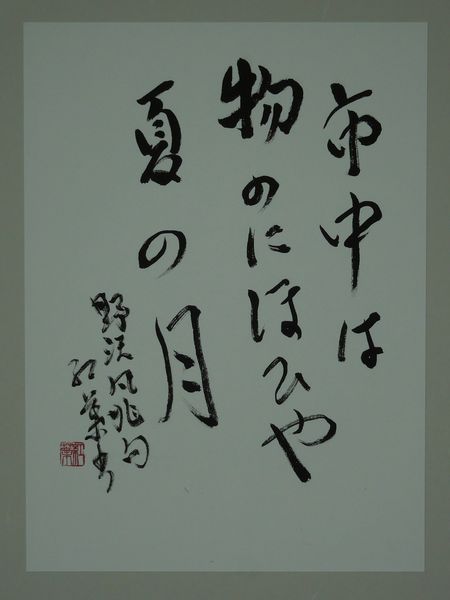 市中は
物のにほひや
夏の月
野沢凡兆句
紅葉書